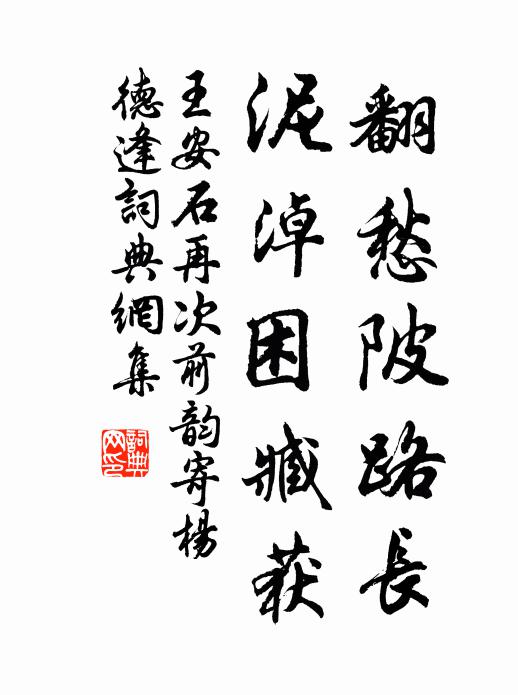 翻愁陂路長
泥淖困臧获
王安石再次前韵寄楊
德逢詞典網集
詞典
网印